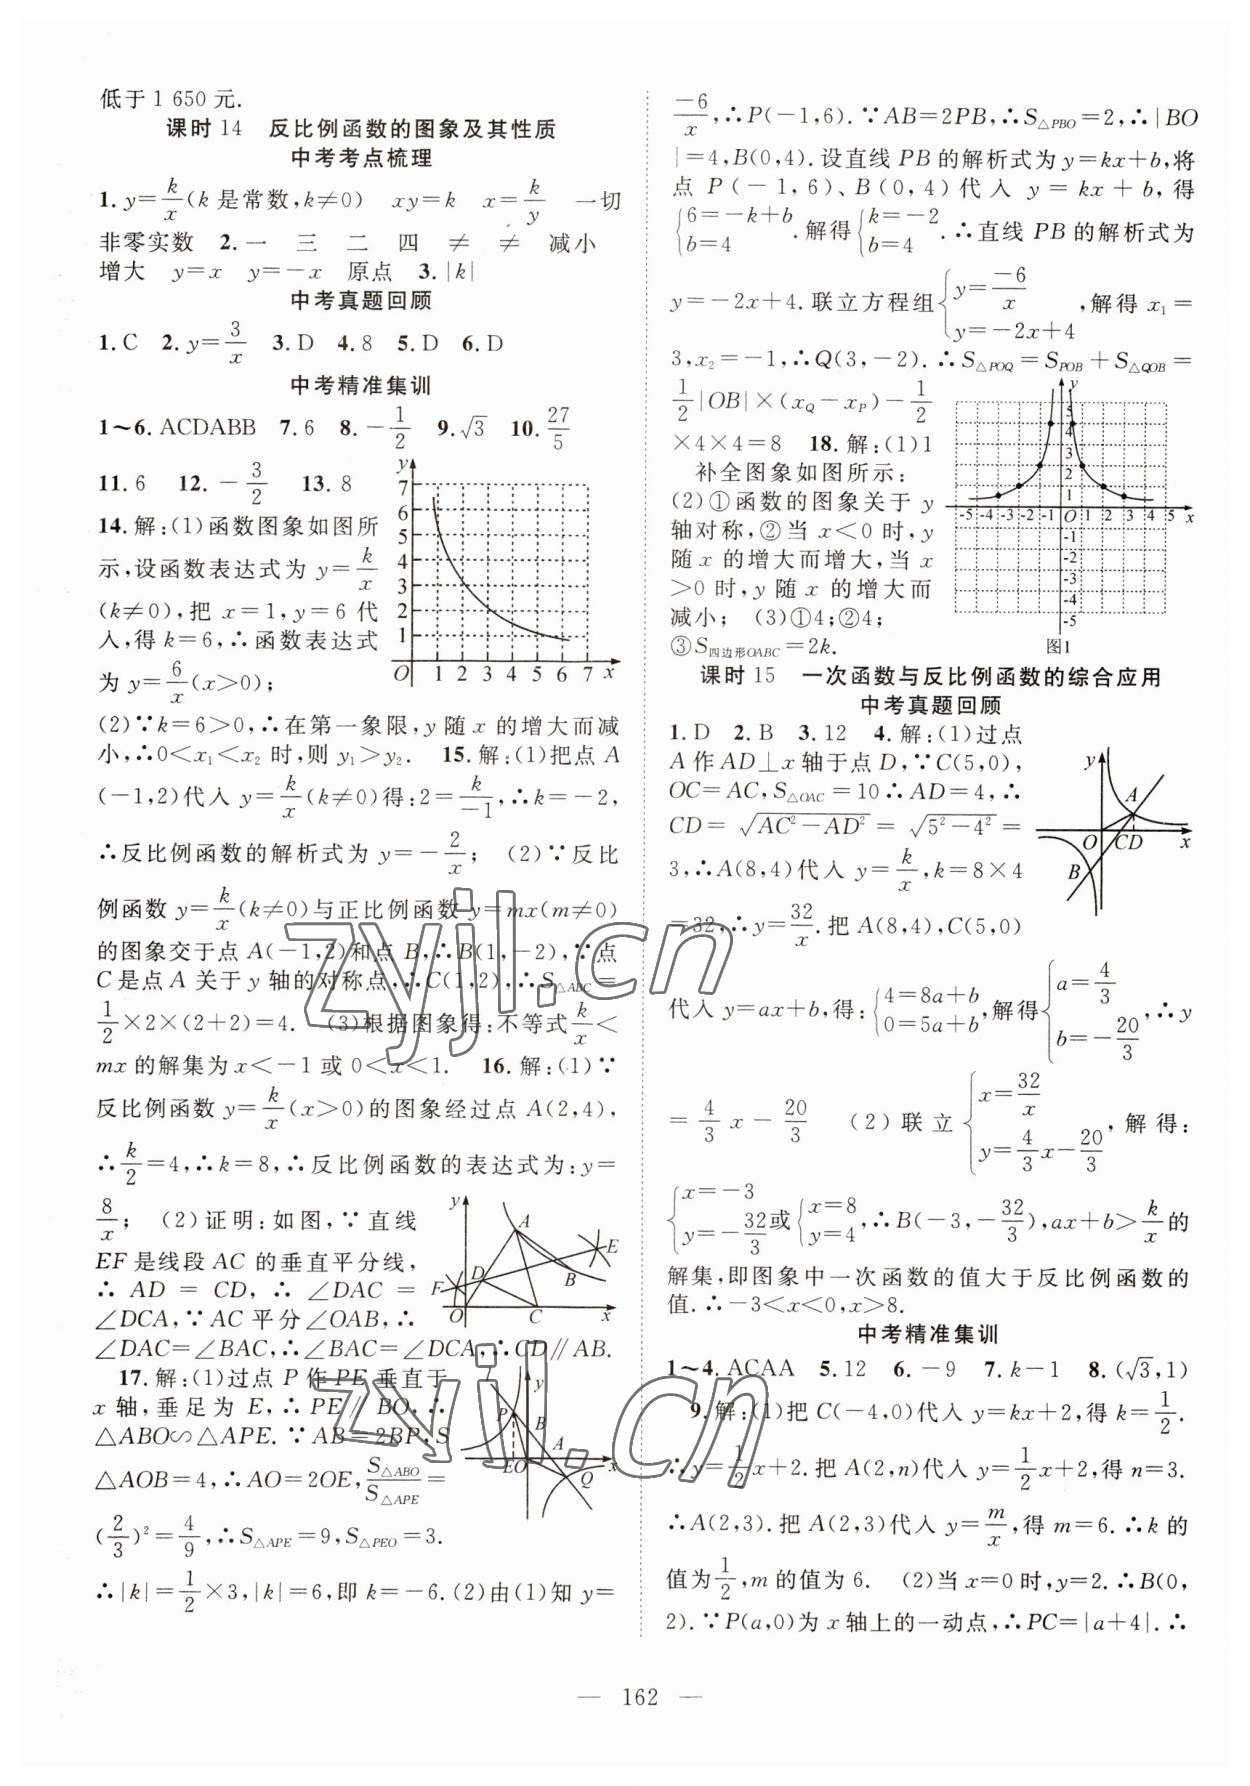 低于 1 650 元.
课时 14　反比例函数的图象及其性质
中考考点梳理
1. y=k/x(k 是常数,k≠0)　xy=k　x=k/y　一切
非零实数　2. 一　三　二　四　≠　≠　减小
增大　y=x　y=-x　原点　3. |k|
中考真题回顾
1. C　2. y=3/x　3. D　4. 8　5. D　6. D
中考精准集训
1～6. ACDABB　7. 6　8. -1/2　9. √3　10. 27/5
11. 6　12. -3/2　13. 8
14. 解:(1)函数图象如图所
示,设函数表达式为 y=k/x
(k≠0),把 x=1,y=6 代
入,得 k=6,∴函数表达式
为 y=6/x(x>0);
y
7
6
5
4
3
2
1
O 1 2 3 4 5 6 7 x
(2)∵k=6>0,∴在第一象限,y 随 x 的增大而减
小,∴0<x₁<x₂ 时,则 y₁>y₂.　15. 解:(1)把点 A
(-1,2)代入 y=k/x(k≠0)得:2=k/-1,∴k=-2,
∴反比例函数的解析式为 y=-2/x;　(2)∵反比
例函数 y=k/x(k≠0)与正比例函数 y=mx(m≠0)
的图象交于点 A(-1,2)和点 B,∴B(1,-2),∵点
C 是点 A 关于 y 轴的对称点,∴C(1,2),∴S△ABC=
1/2×2×(2+2)=4.　(3)根据图象得:不等式k/x<
mx 的解集为 x<-1 或 0<x<1.　16. 解:(1)∵
反比例函数 y=k/x(x>0)的图象经过点 A(2,4),
∴k/2=4,∴k=8,∴反比例函数的表达式为:y=
8/x;　(2)证明:如图,∵直线
EF是线段 AC 的垂直平分线,
∴ AD = CD,∴ ∠DAC =
∠DCA,∵AC 平分∠OAB,∴
∠DAC=∠BAC,∴∠BAC=∠DCA,∴CD∥AB.
y A E D B F O C x
17. 解:(1)过点 P 作 PE 垂直于
x 轴,垂足为 E,∴PE∥BO,∴
△ABO∽△APE. ∵AB=2BP,S
△AOB=4,∴AO=2OE,S△ABO/S△APE=
(2/3)²=4/9,∴S△APE=9,∴S△PEO=3.
y P B A E O Q x
∴|k|=1/2×3,|k|=6,即 k=-6.(2)由(1)知 y=
-6/x,∴P(-1,6). ∵AB=2PB,∴S△PBO=2,∴|BO
|=4,B(0,4). 设直线 PB 的解析式为 y=kx+b,将
点 P(-1,6)、B(0,4)代入 y=kx+b,得
{6=-k+b
b=4 .解得{k=-2
b=4 .∴直线 PB 的解析式为
y=-2x+4. 联立方程组{y=-6/x
y=-2x+4 ,解得 x₁=
3,x₂=-1,∴Q(3,-2). ∴S△POQ=SPOB+S△QOB=
1/2|OB|×(xQ-xP)-1/2
×4×4=8　18. 解:(1)1
补全图象如图所示:
(2)①函数的图象关于 y
轴对称,②当 x<0 时,y
随 x 的增大而增大,当 x
>0 时,y 随 x 的增大而
减小;　(3)①4;②4;
③S四边形OABC=2k.
y
5
4
3
2
1
-5 -4 -3 -2 -1 O 1 2 3 4 5 x
-1
-2
-3
-4
-5
图1
课时 15　一次函数与反比例函数的综合应用
中考真题回顾
1. D　2. B　3. 12　4. 解:(1)过点
A 作 AD⊥x 轴于点 D,∵C(5,0),
OC=AC,S△OAC=10∴AD=4,∴
CD=√(AC²-AD²)=√(5²-4²)=
3,∴A(8,4)代入 y=k/x,k=8×4
=32,∴y=32/x. 把 A(8,4),C(5,0)
y A O C D x B
代入 y=ax+b,得:{4=8a+b
0=5a+b,解得{a=4/3
b=-20/3,∴y
=4/3x-20/3　(2)联立{x=32/x
y=4/3x-20/3,解得:
{x=-3
y=-32/3或{x=8
y=4,∴B(-3,-32/3),ax+b>k/x的
解集,即图象中一次函数的值大于反比例函数的
值. ∴-3<x<0,x>8.
中考精准集训
1～4. ACAA　5. 12　6. -9　7. k-1　8. (√3,1)
9. 解:(1)把 C(-4,0)代入 y=kx+2,得 k=1/2.
∴y=1/2x+2. 把 A(2,n)代入 y=1/2x+2,得 n=3.
∴A(2,3). 把 A(2,3)代入 y=m/x,得 m=6. ∴k 的
值为1/2,m 的值为 6.　(2)当 x=0 时,y=2. ∴B(0,
2). ∵P(a,0)为 x 轴上的一动点,∴PC=|a+4|. ∴
zyjl.cn
zyjl.cn
— 162 —